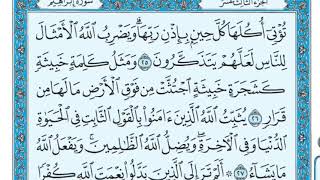 سورة إبراهيم الجزء الثالث عشر
تُؤْتِىٓ أُكُلَهَا كُلَّ حِينٍۭ بِإِذْنِ رَبِّهَا ۗ وَيَضْرِبُ ٱللَّهُ ٱلْأَمْثَالَ
لِلنَّاسِ لَعَلَّهُمْ يَتَذَكَّرُونَ ٢٥ وَمَثَلُ كَلِمَةٍ خَبِيثَةٍ
كَشَجَرَةٍ خَبِيثَةٍ ٱجْتُثَّتْ مِن فَوْقِ ٱلْأَرْضِ مَا لَهَا مِن
قَرَارٍ ٢٦ يُثَبِّتُ ٱللَّهُ ٱلَّذِينَ ءَامَنُوا۟ بِٱلْقَوْلِ ٱلثَّابِتِ فِى ٱلْحَيَوٰةِ
ٱلدُّنْيَا وَفِى ٱلْـَٔاخِرَةِ ۖ وَيُضِلُّ ٱللَّهُ ٱلظَّٰلِمِينَ ۚ وَيَفْعَلُ ٱللَّهُ
مَا يَشَآءُ ٢٧ أَلَمْ تَرَ إِلَى ٱلَّذِينَ بَدَّلُوا۟ نِعْمَتَ ٱللَّهِ كُفْرًا